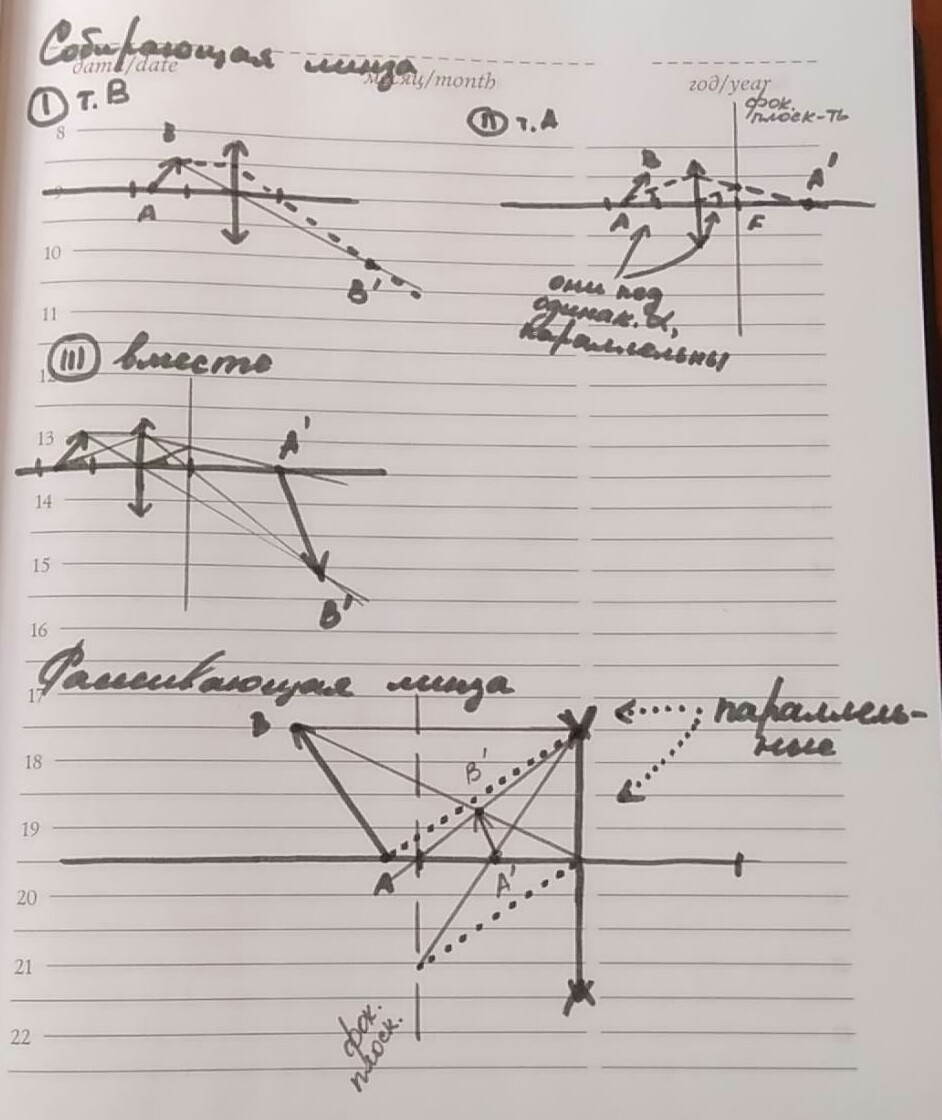 Собирающая линза
дата/date
месяц/month
год/year
I т. В
II т. А
фок.
плоск-ть
8
В
А
В'
В
А
F
А'
9
10
11
они под
одинак. α,
параллельны
III вместе
12
13
А'
14
15
В'
16
Рассеивающая линза
17
В
параллель-
ные
18
В'
19
А
А'
20
21
фок.
плоск.
22